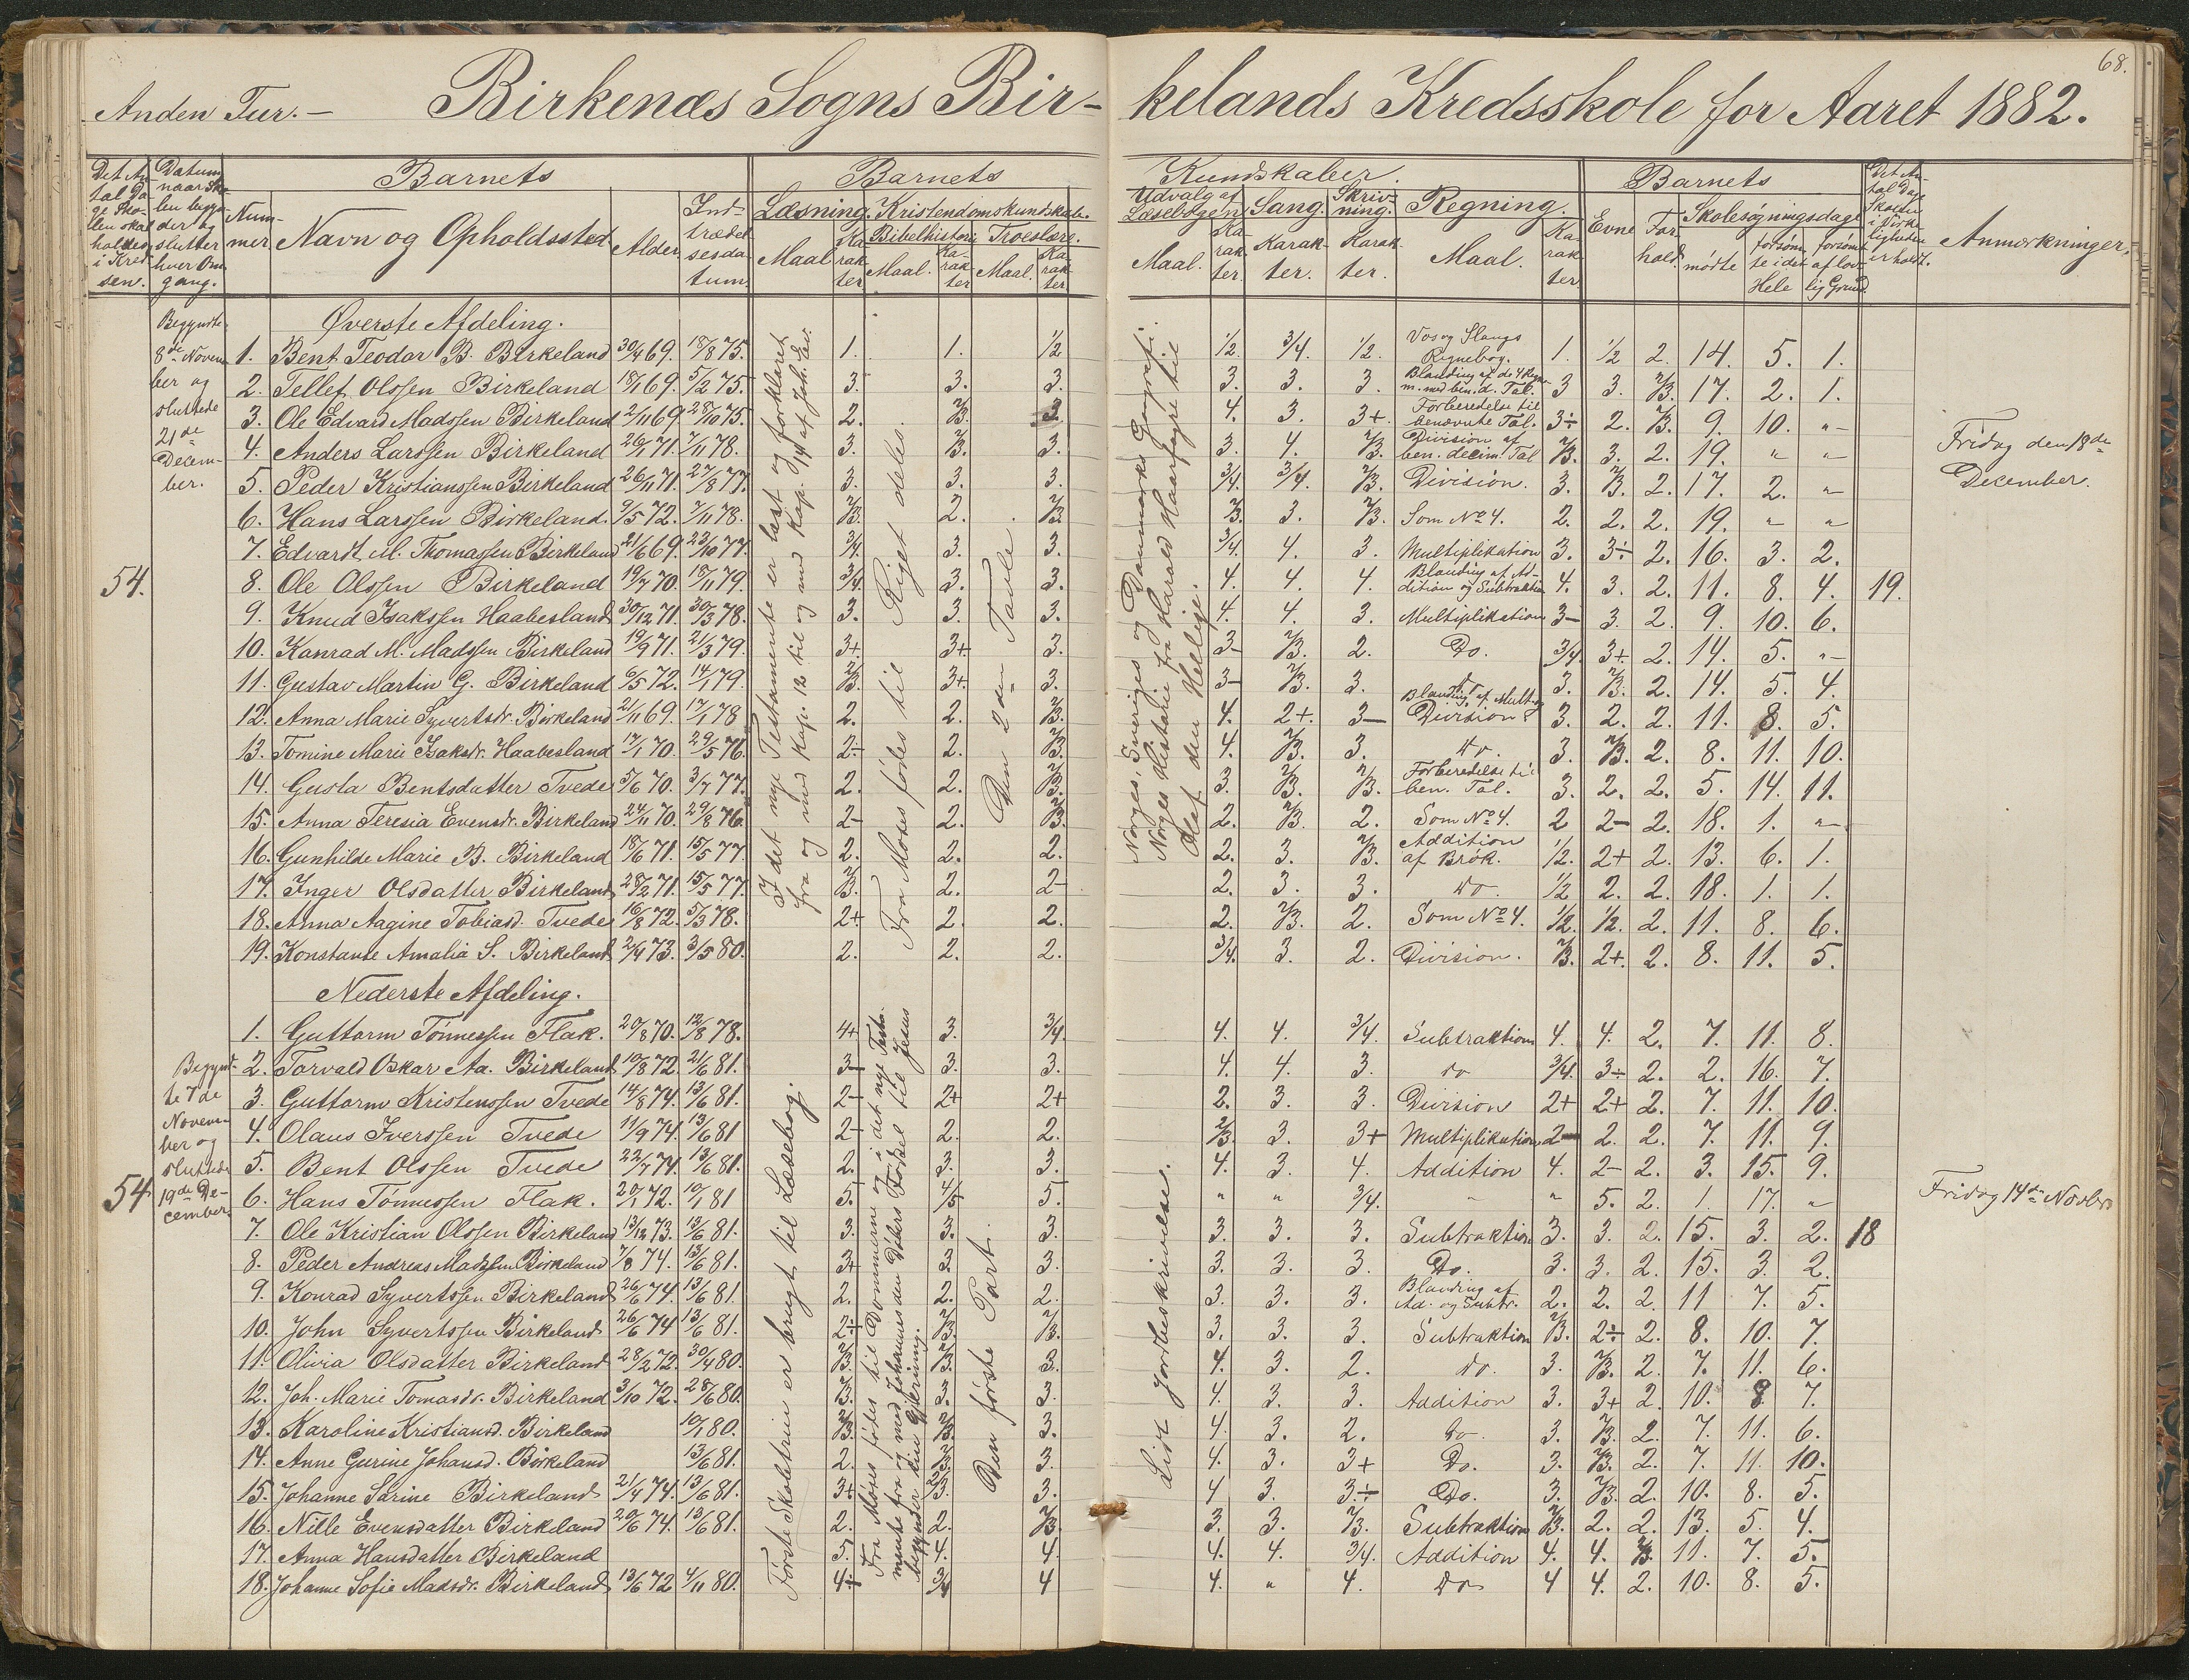 68.
Anden Tur. – Birkenæs Sogns Bir- kelands Kredsskole for Aaret 1882.
Barnets Barnets Kundskaber. Barnets
Nummer Navn og Opholdssted Alder Indtrædelsesdatum Læsning. Kristendomskundskab. Udvalg af Læsebogen Sang Skrivning. Regning. Evne Forhold. Skolesøgningsdage Anmærkninger.
Maal Karakter Bibelhistorie Troeslære.
Maal. Karakter Maal. Karakter
Maal. Karakter. Karakter. Karakter. Maal. Karakter
mødte forsømte i det Hele forsømte af lovlig Grund
Øverste Afdeling.
Begyndte 8de November og sluttede 21de December.
54.
1. Bent Teodor B. Birkeland 30/4 69. 18/8 75. 1. 1. 1/2 1/2. 3/4. 1/2. Vos og Slangs Regnebog. 1. 1/2 2. 14. 5. 1.
2. Tellef Olssen Birkeland 18/1 69. 5/2 75. 3. 3. 3. 3. 3. 3. 3 3. 2/3. 17. 2. 1.
3. Ole Edvard Madssen Birkeland 2/11 69. 28/10 75. 2. 2/3. 3. 4. 3. 3+ Forberedelse til benævnte Tal. 3÷ 2. 2/3. 9. 10. "
4. Anders Larssen Birkeland 26/1 71. 7/11 78. 3. 2/3. 3. 3. 4. 2/3. Division af ben. decim. Tal 2/3. 3. 2. 19. " "
Fridag den 18de December.
5. Peder Kristianssen Birkeland 26/11 71. 27/8 77. 3. 3. 3. 3/4. 3/4. 2/3. Division. 3. 2/3. 2. 17. 2. "
6. Hans Larssen Birkeland. 9/5 72. 7/11 78. 2/3. 2. 2/3. 2/3. 3. 2/3. Som No 4. 2. 2. 2. 19. " "
7. Edvardt M. Thomassen Birkeland 21/6 69. 23/10 77. 3/4. 3. 3. 3/4. 4. 3. Multiplikation 3. 3÷ 2. 16. 3. 2.
8. Ole Olssen Birkeland 19/7 70. 18/11 79. 3/4. 3. 3. 4. 4. 4. Blanding af Addition og Subtraktion 4. 3. 2. 11. 8. 4. 19.
9. Knud Isakssen Haabesland 30/12 71. 30/3 78. 3. 3. 3. 4. 4. 3. Multiplikation 3– 3. 2. 9. 10. 6.
10. Konrad M. Madssen Birkeland 19/9 71. 21/3 79. 3+. 3+ 3. 3– 2/3. 2. Do. 3/4. 3+ 2. 14. 5. "
11. Gustav Martin G. Birkeland 6/5 72. 14/1 79. 2/3. 3+. 3. 3– 2/3. 3. 3. 2/3. 2. 14. 5. 4.
12. Anna Marie Syvertsdr. Birkeland 2/11 69. 17/1 78 2. 2. 2/3. 4. 2+. 3– Blanding af Mult. og Division 3. 2. 2. 11. 8. 5.
13. Tomine Marie Isaksdr. Haabesland 17/1 70. 29/5 76. 2÷ 2. 2/3. 4. 2/3. 3. do. 3. 2/3. 2. 8. 11. 10.
14. Gusta Bentsdatter Tvede 5/6 70. 3/7 77. 2. 2. 2/3. 3. 2/3. 2/3. Forberedelse til ben. Tal. 3. 2. 2. 5. 14. 11.
15. Anna Teresia Evensdr. Birkeland 24/11 70. 29/8 76. 2– 2. 2/3. 2. 2/3. 2. Som No 4. 2 2– 2. 18. 1. "
16. Gunhilde Marie B. Birkeland 18/6 71. 15/5 77. 2. 2. 2. 2. 3. 2/3. Addition af Brøk. 1/2. 2+ 2. 13. 6. 1.
17. Inger Olsdatter Birkeland 28/2 71. 15/5 77. 2/3. 2. 2– 2. 3. 3. do. 1/2 2. 2. 18. 1. 1.
18. Anna Aagine Tobiasd. Tvede 16/8 72. 5/3 78. 2+ 2. 2. 2. 2/3. 2. Som No 4. 1/2. 1/2. 2. 11. 8. 6.
19. Konstante Amalia S. Birkeland 2/4 73. 3/5 80. 2. 2. 2. 3/4. 3. 2. Division. 2/3. 2+. 2. 8. 11. 5.
I det nye Testamente er læst og forklaret
fra og med Kap. 12 til og med Kap. 14 af Joh. Ev.
Fra Moses fødes til Rigets deles.
Den 2den Tavle.
Norges, Sveriges og Danmarks Geografi.
Norges Historie fra Harald Haarfagre til
Olaf den Hellige.
Nederste Afdeling.
Begyndte 7de November og sluttede 19de December.
54
1. Guttorm Tönnessen Flak. 20/8 70. 12/8 78. 4+ 3. 3/4. 4. 4. 3/4. Subtraktion 4. 4. 2. 7. 11. 8.
2. Torvald Oskar Aa. Birkeland 10/8 72. 21/6 81. 3– 3. 3. 4. 4. 3. do 3/4. 3÷ 2. 2. 16. 7.
3. Guttorm Kristenssen Tvede 14/8 74. 13/6 81. 2– 2+ 2+ 2. 3. 3. Division 2+ 2+ 2. 7. 11. 10.
4. Olaus Iverssen Tvede 11/9 74. 13/6 81 2– 2. 2. 2/3. 3. 3+ Multiplikation 2– 2. 2. 7. 11. 9.
5. Bent Olssen Tvede 22/7 74. 13/6 81. 2. 3. 3. 4. 3. 4. Addition 4. 2– 2. 3. 15. 9.
6. Hans Tönnessen Flak. 20/1 72. 10/1 81 5. 4/5 5. " " 3/4. " " 5. 2. 1. 17. "
Fridag 14de Novbr.
7. Ole Kristian Olssen Birkeland 13/12 73. 13/6 81. 3. 3. 3. 3. 3. 3. Subtraktion 3. 3. 2. 15. 3. 2. 18
8. Peder Andreas Madssen Birkeland 7/8 74. 13/6 81. 3+ 3 3. 3. 3. 3. Do. 3. 3. 2. 15. 3. 2.
9. Konrad Syvertssen Birkeland 26/6 74. 13/6 81. 2. 2. 2. 3. 3. 3. Blanding af Ad. og Subtr. 2. 2. 2. 11 7. 5.
10. John Syvertssen Birkeland 26/6 74 13/6 81. 2÷ 2/3. 2/3. 3. 3. 3. Subtraktion 2/3. 2÷ 2. 8. 10. 7.
11. Olivia Olsdatter Birkeland 28/2 72. 30/4 80. 2/3. 2/3. 3. 4. 3. 2. do. 3. 2/3. 2. 7. 11. 6.
12. Joh. Marie Tomasdr. Birkeland 3/10 72. 28/6 80. 2/3. 3. 3. 4. 3. 3. Addition 3. 3+ 2. 10. 8 7.
13. Karoline Kristiansd. Birkeland 10/1 80. 2/3. 2/3. 3. 4. 3. 2. do. 3. 2/3. 2. 7. 11. 6.
14. Anne Gurine Johansd. Birkeland 13/6 81. 2. 2/3. 3. 4. 3. 3+ Do. 3. 2/3. 2. 7. 11. 10.
15. Johanne Sarine Birkeland 21/4 74. 13/6 81. 3+ 2/3. 3. 4 3. 3÷ Do. 3. 2/3. 2. 10. 8. 5.
16. Nille Evensdatter Birkeland 20/6 74. 13/6 81. 2. 2. 2/3. 3. 3. 2/3. Subtraktion 2/3. 2. 2. 13. 5. 4.
17. Anna Hansdatter Birkeland 5. 4. 4. 4. 4. 3/4. Addition 4. 4. 2/3. 11. 7. 5.
18. Johanne Sofie Madsdr. Birkeland 13/6 72 4/11 80. 4÷ 3/4 4 4. " 4. Do 4 4. 2. 10. 8. 5.
Første Skoletrin er brugt til Læsebog.
Fra Moses fødes til Dommerne og i det nye Testamente fra og med Johannes den Døbers Fødsel til Jesus begynder sin Gjerning.
Den første Part.
Lidt Jordbeskrivelse.